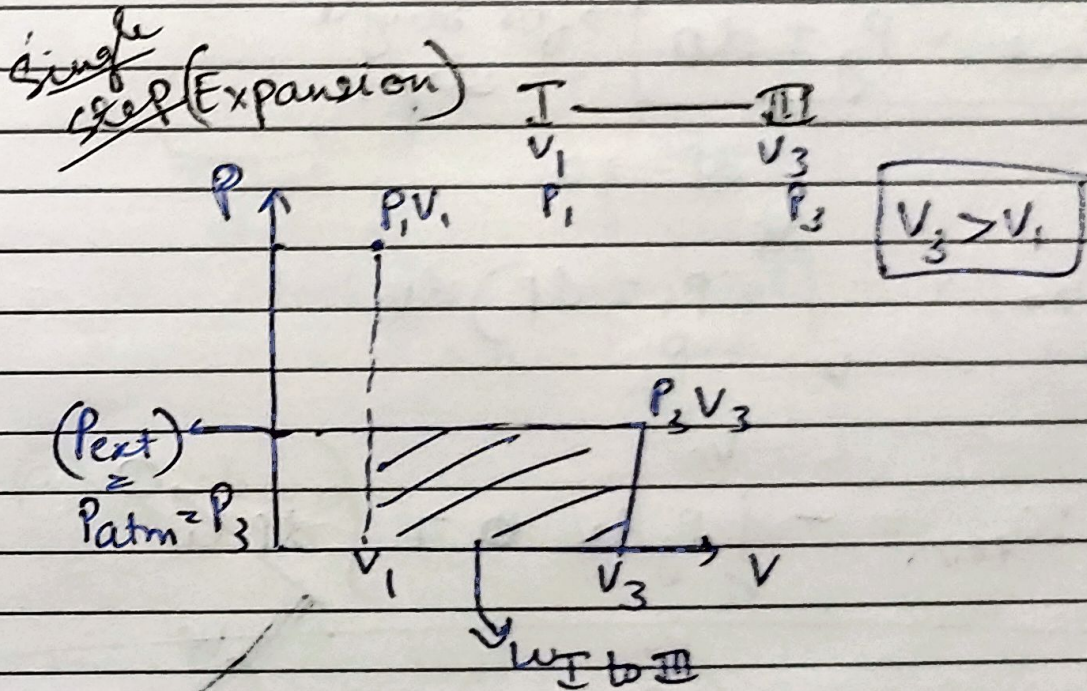 Single
step (Expansion)
I — III
V₁ V₃
P₁ P₃
V₃ > V₁
P
P₁V₁
P₃V₃
(Pext)
=
Patm = P₃
V₁ V₃ V
W I to III